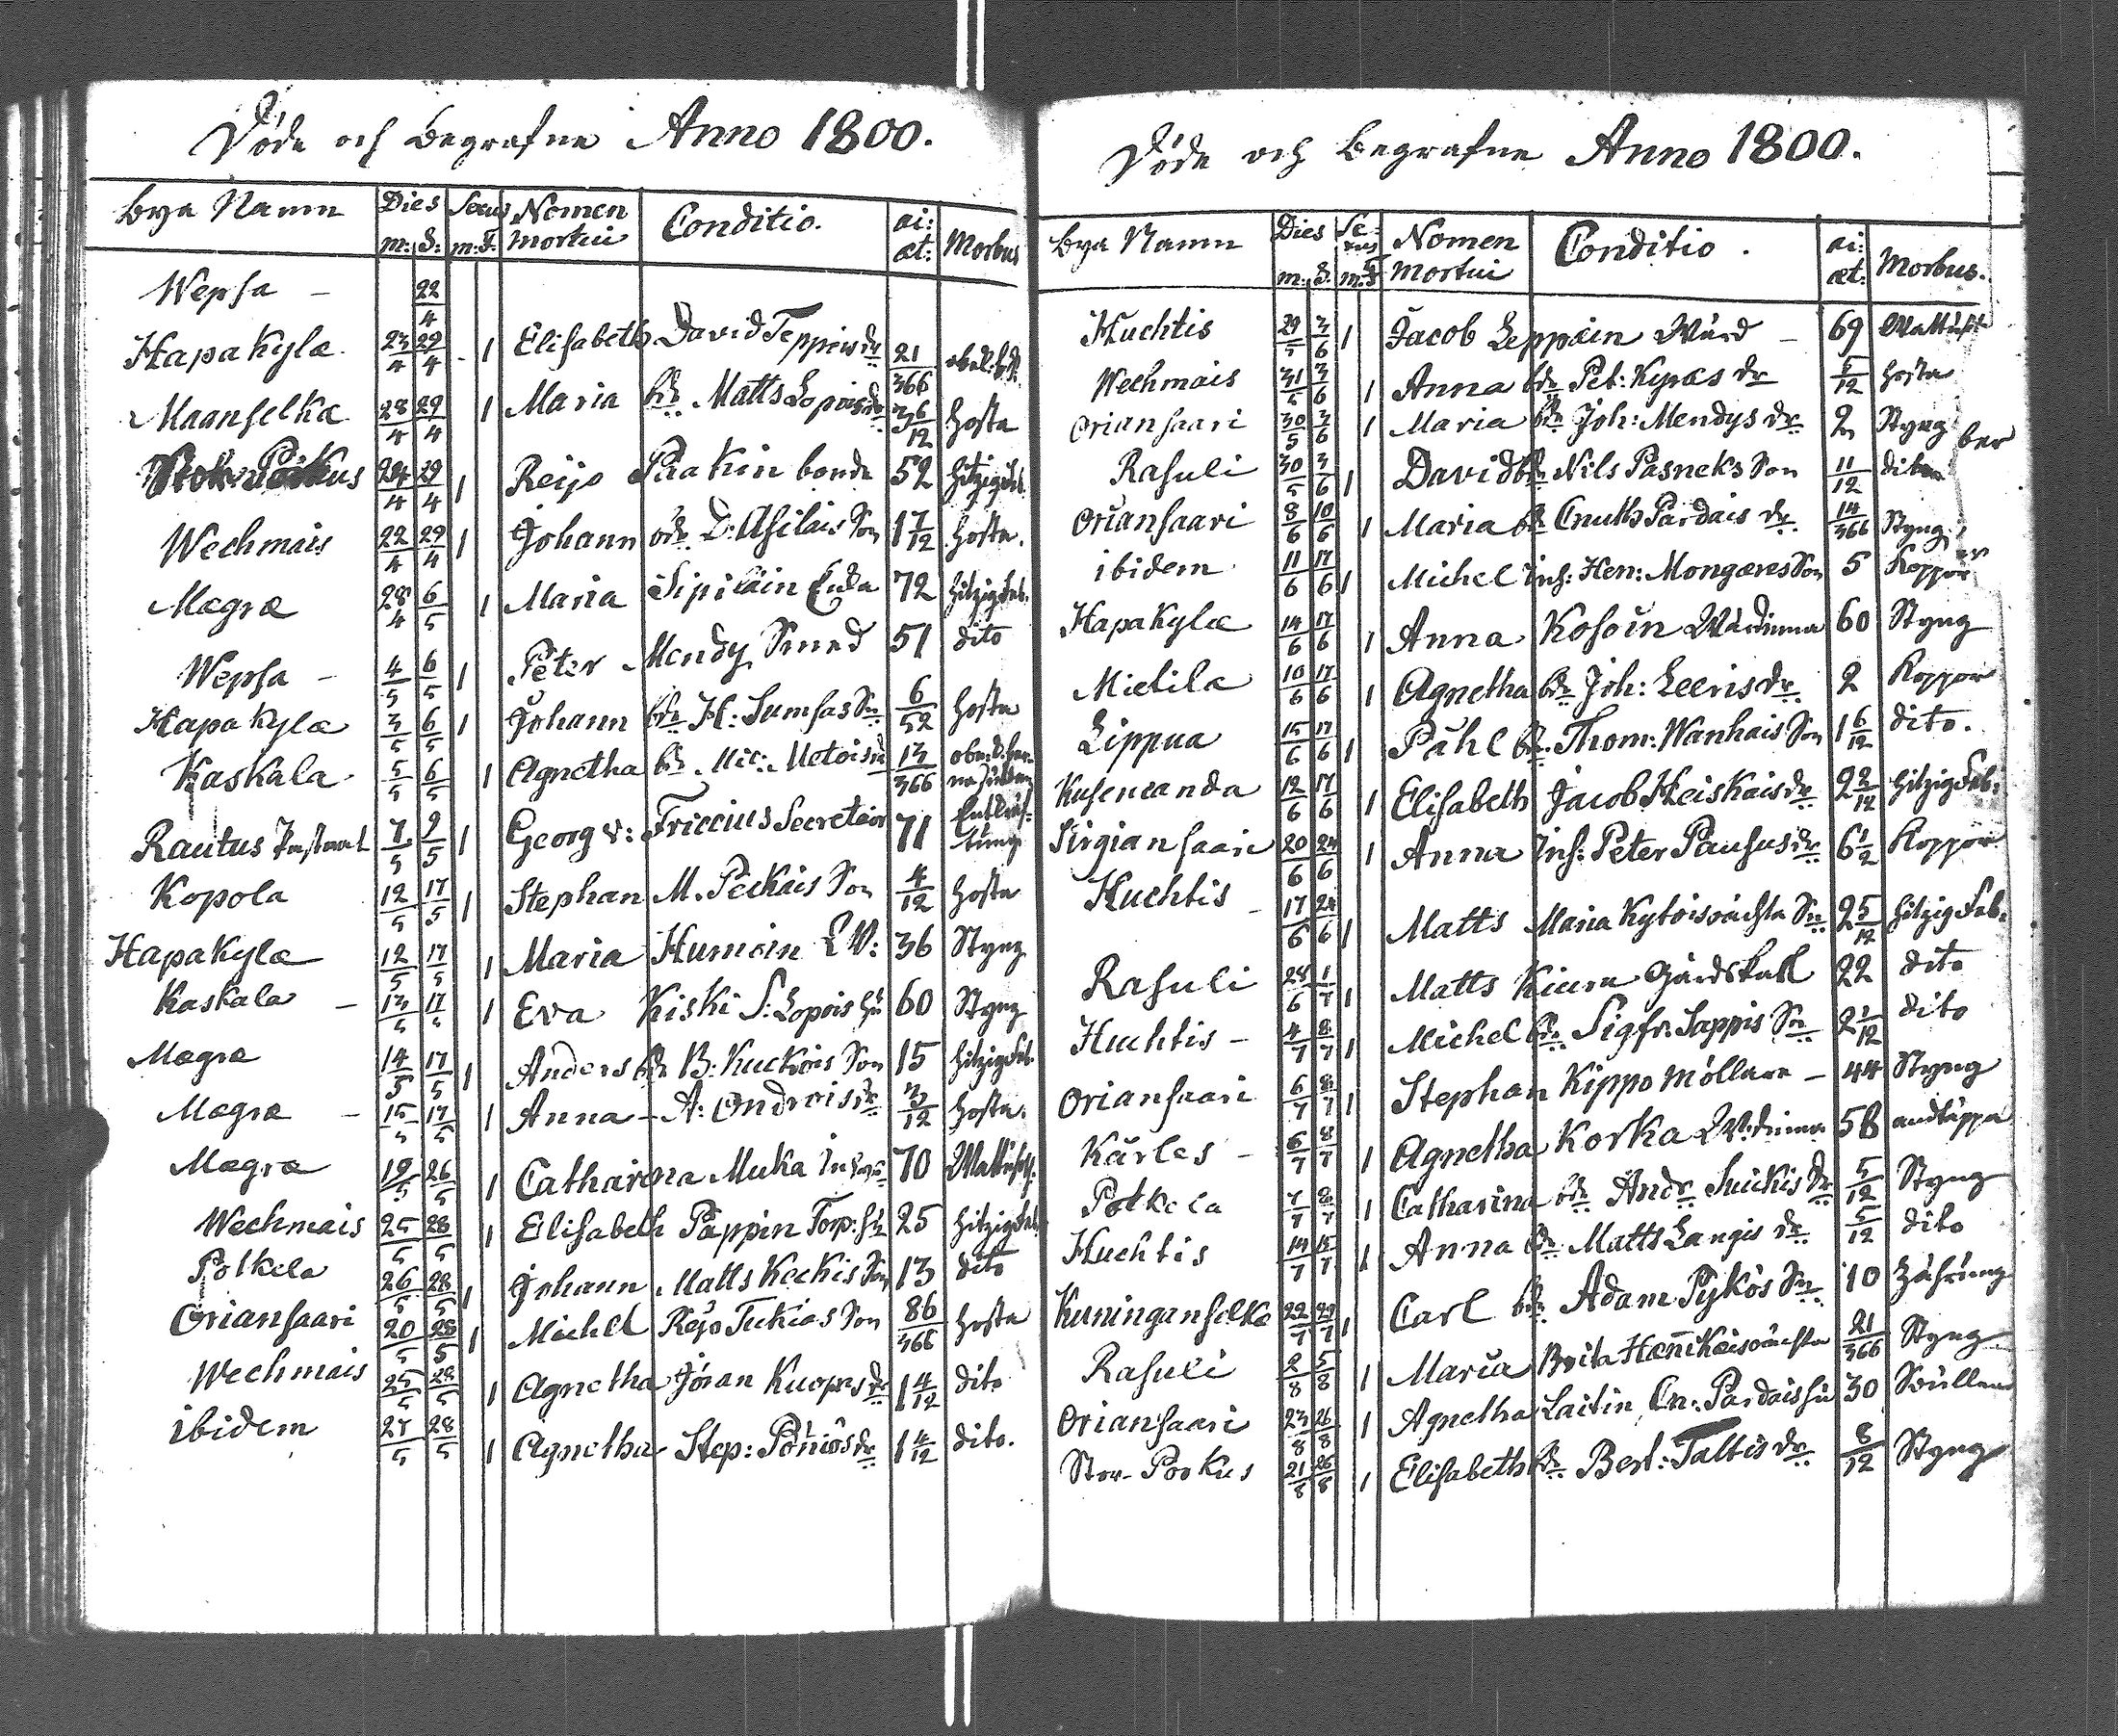 Döde och Begrafne Anno 1800.
Bya Namn Dies Sexus Nomen Conditio. ai: Morbus
m: d: m: F. mortui æt:
Wepsa – 22/4
Hapakylæ 23/4 29/4 1 Elisabeth David Teppoisdr 21/366
Maanselkæ 28/4 29/4 1 Maria bdr Matts Lopoisdr 3 6/12 hosta
Stor Porkus 24/4 29/4 1 Reijo Paakin bonde 52 hitzig feb.
Wechmais 22/4 29/4 1 Johann bdr D: Asilais Son 1 7/12 hosta.
Mægræ 28/4 6/5 1 Maria Sipiläin Enka 72 hitzig feb.
Wepsa – 4/5 6/5 1 Peter Mendy Smed 51 dito
Hapakylæ 3/5 6/5 1 Johann bdr H: Sumsas Sn 6/52 hosta
Kaskala 5/5 6/5 1 Agnetha bdr Mic: Metoisd 13/366
Rautus Pastorat 7/5 9/5 1 Georg v: Friccius Secretair 71
Kopola 12/5 17/5 1 Stephan M. Peckois Son 4/12 hosta
Hapakylæ 12/5 17/5 1 Maria Humoin E W: 36 Styng
Kaskala – 13/5 17/5 1 Eva Kiski S: Lopois hu 60 Styng
Mægræ 14/5 17/5 1 Anders bdr B: Kuckois Son 15 hitzig feb.
Mægræ – 15/5 17/5 1 Anna – A: Ondroisdr 3/12 hosta.
Mægræ 19/5 26/5 1 Catharina Muka 70
Wechmais 25/5 28/5 1 Elisabeth Pappin Torp: hu 25 hitzig feb.
Polkela 26/5 28/5 1 Johann Matts Keckis Son 13 dito
Oriansaari 20/5 28/5 1 Michel Reijo Tukias Son 86/366 hosta
Wechmais 25/5 28/5 1 Agnetha Jöran Kuopasdr 1 4/12 dito
ibidem 27/5 28/5 1 Agnetha Step: Pöniösdr 1 4/12 dito.
Döde och Begrafne Anno 1800.
Bya Namn Dies Sexus Nomen Conditio. ai: Morbus.
m: d. m: F mortui æt:
Huchtis 29/5 3/6 1 Jacob Leppäin Wärd – 69
Wechmais 31/5 3/6 1 Anna bdr Pet: Kyræs dr 5/12 hosta
Oriansaari 30/5 3/6 1 Maria bdr Joh: Mendys dr 2 Styng
Rasuli 30/5 3/6 1 David bdr Nils Pasneks Son 11/12 dito
Oriansaari 8/6 10/6 1 Maria bdr Cnuth Pardais dr 14/366 Styng
ibidem 11/6 17/6 1 Michel Inh: Hen: Mongæres Son 5 Koppor
Hapakylæ 14/6 17/6 1 Anna Kosoin Wärdinna 60 Styng
Mietilæ 10/6 17/6 1 Agnetha bdr Joh: Leerisdr 2 Koppor
Lippua 15/6 17/6 1 Påhl bdr Thom: Wanhais Son 1 6/12 dito.
Kuseneanda 12/6 17/6 1 Elisabeth Jacob Heiskaisdr 2 2/12 hitzig feb:
Sirgiansaari 20/6 24/6 1 Anna Inh: Peter Pausus dr 6 1/2 Koppor
Huchtis – 17/6 24/6 1 Matts Maria Kytois oächta Sn 2 5/12 hitzig feb.
Rasuli 28/6 1/7 1 Matts Kiuru Gårdskall 22 dito
Huchtis – 4/7 8/7 1 Michel bdr Sigfr: Sappis Sn 2 1/12 dito
Oriansaari 6/7 8/7 1 Stephan Kippo Möllare – 44 Styng
Kärles – 6/7 8/7 1 Agnetha Korka Wärdinna 58 andtäppa
Polkela 7/7 8/7 1 Catharina bdr Andr: Suickis dr 5/12 Styng
Huchtis 14/7 15/7 1 Anna bdr Matts Langis dr 5/12 dito
Kuninganselkæ 22/7 29/7 1 Carl bdr Adam Pykös Sn 10 Zährung
Rasuli 2/8 5/8 1 Maria Brita Hænnikäis oächta 21/366 Styng
Oriansaari 23/8 26/8 1 Agnetha Laitin Cn: Pardais hu 30
Stor Porkus 21/8 26/8 1 Elisabeth bdr Bert: Taltis dr 8/12 Styng